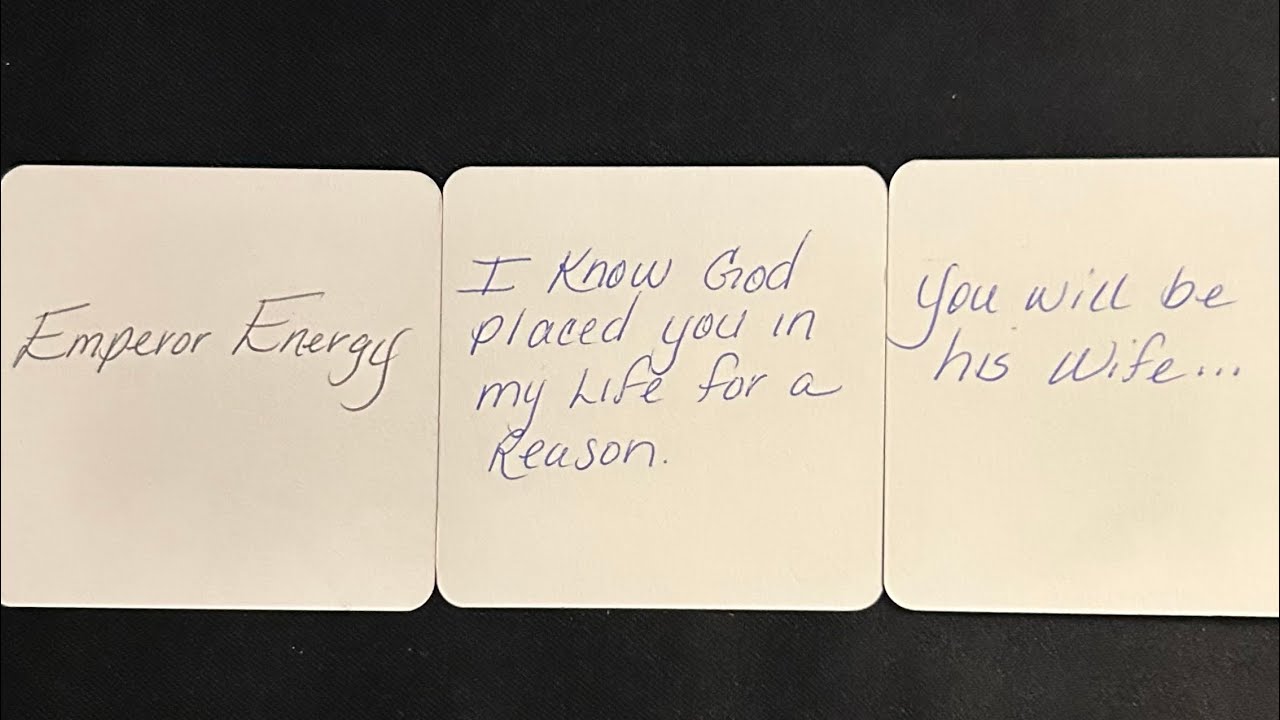 Emperor Energy
I Know God
placed you in
my Life for a
Reason.
You will be
his Wife...